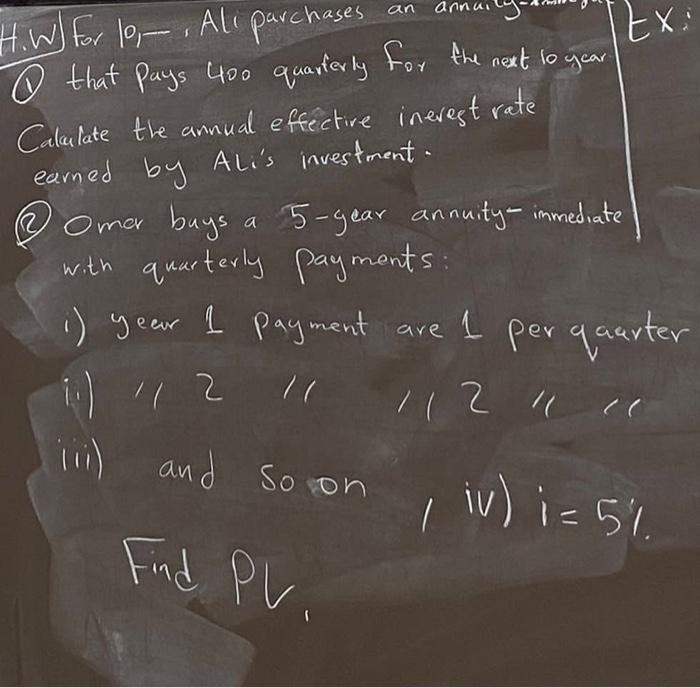 H.W) For 10,—, Ali purchases an
① that pays 400 quarterly for the next 10 year
Calculate the annual effective inerest rate
earned by ALi's investment.
② Omer buys a 5-year annuity-immediate
with quarterly payments:
i) year 1 payment are 1 per quarter
ii) 〃 2 〃 〃 2 〃 〃
iii) and so on , iv) i = 5%.
Find PV.
Ex: